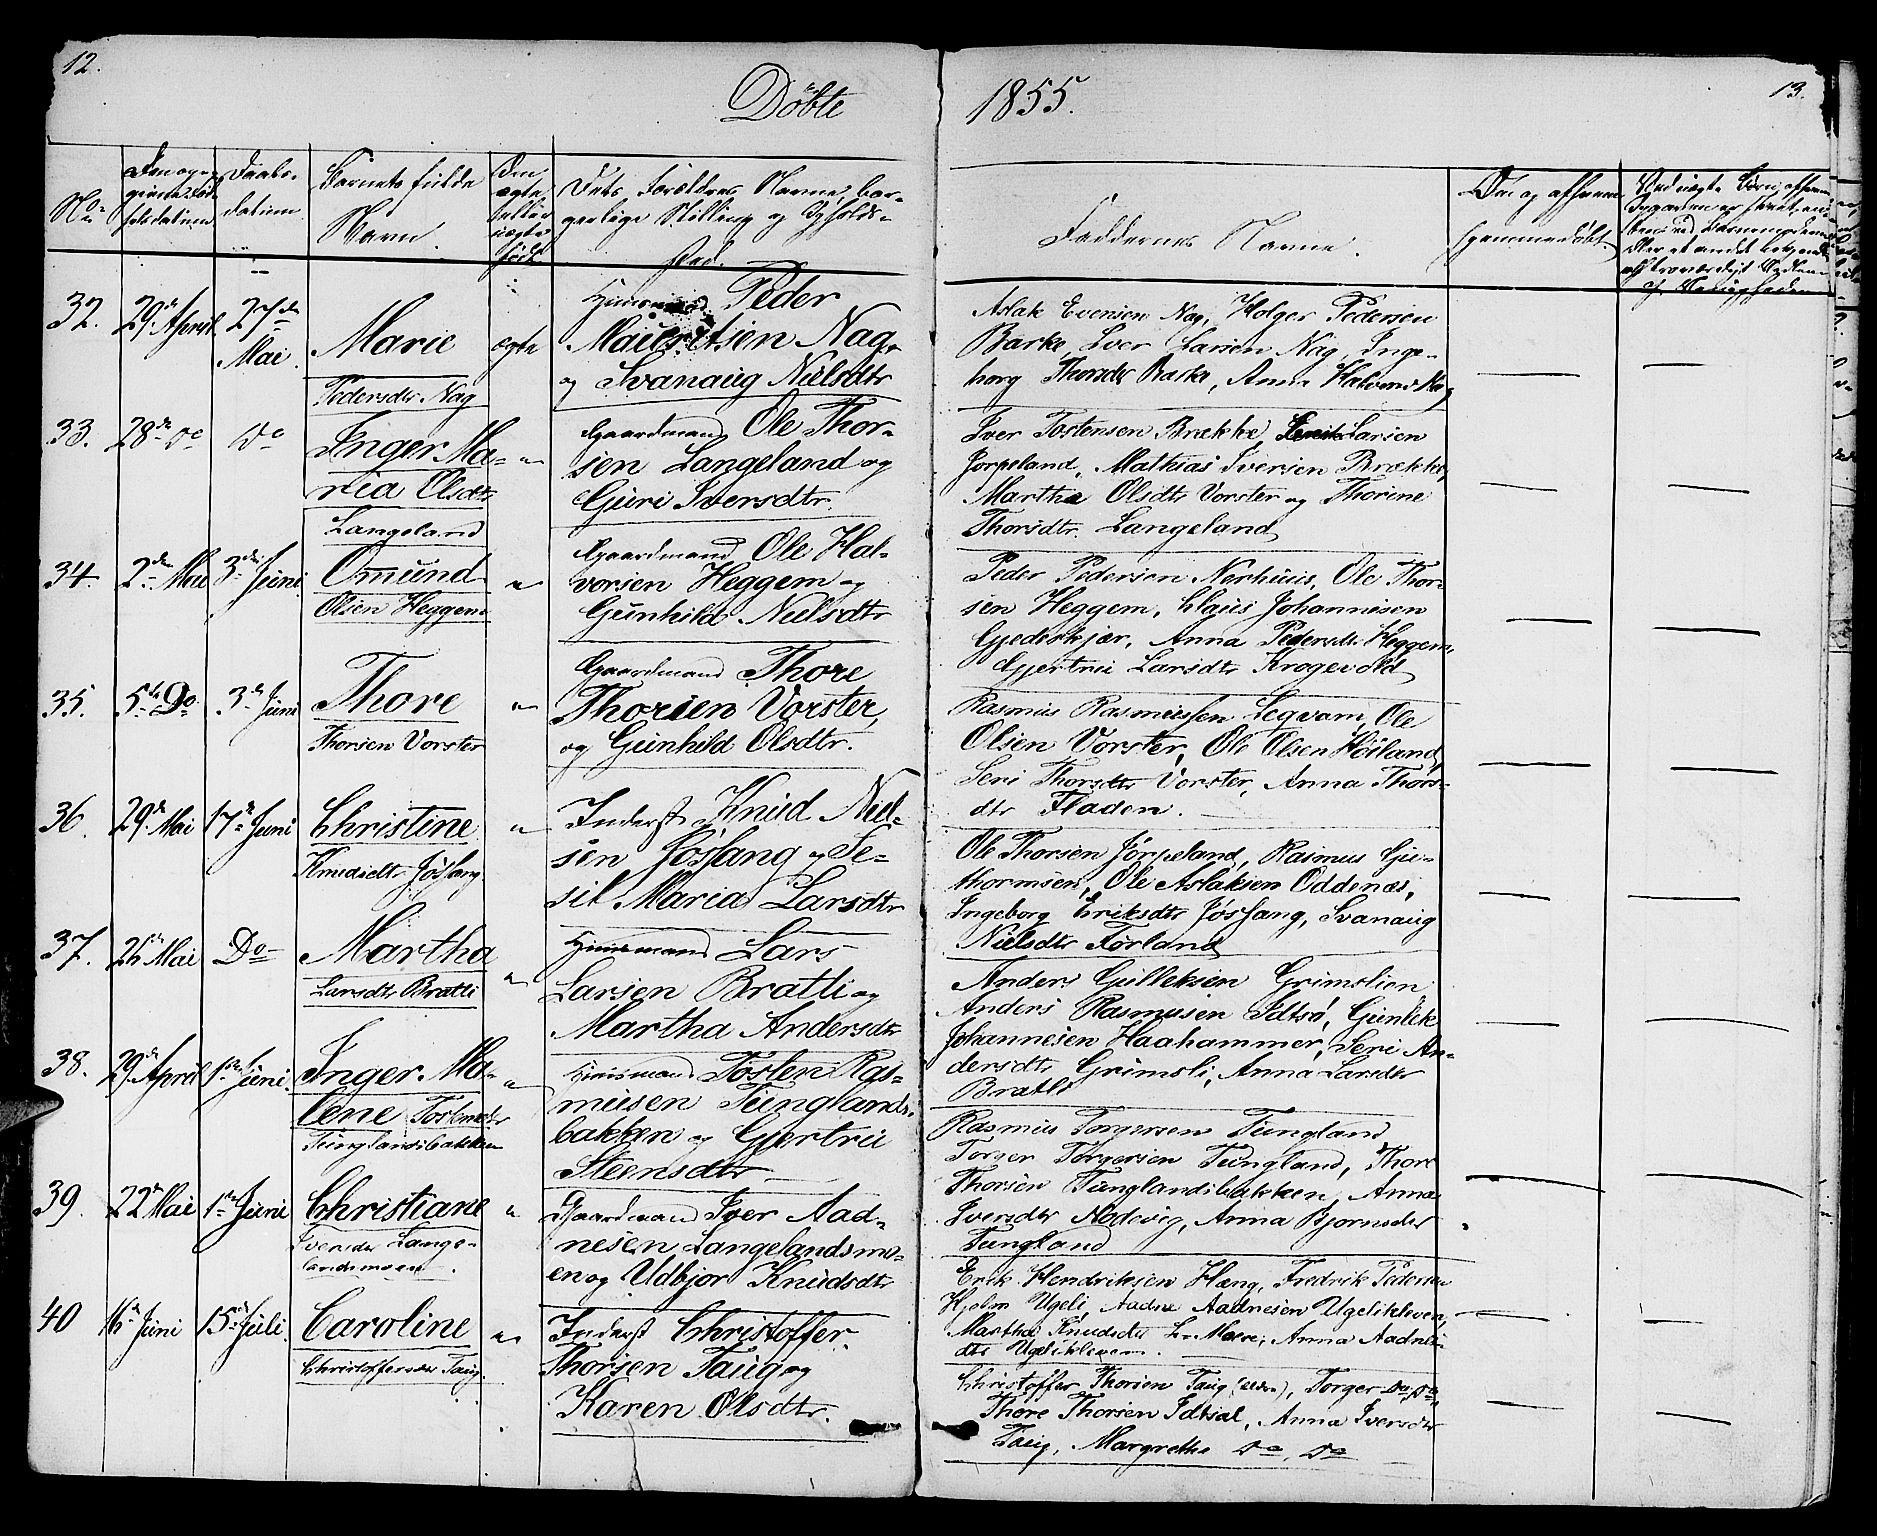 12.
Döbte
1855.
13.
No
Den opgivne Fødselsdatum
Daabsdatum
Barnets fulde
Navn.
Om
ægte
eller
uægte
født
Dets Forældres Navne, bor-
gerlige Stilling og Opholds-
sted.
Faddernes Navne.
Om og af hvem
hjemmedøbt
32.
29de April
27de
Mai.
Marie
Pedersdtr Nag
ægte
Huusmand Peder
Mauritsen Nag,
og Svanaug Nielsdtr
Aslak Evensen Nag, Holger Pedersen
Barke, Iver Larsen Nag, Inge-
borg Thorsdtr Barke, Anna Halvorsd Nag
33.
28de do
do
Inger Ma-
ria Olsdtr
Langeland
Gaardmand Ole Thor-
sen Langeland og
Guri Iversdtr.
Iver Tostensen Brække, Larsen
Jorpeland, Mathias Iversen Brække,
Martha Olsdtr Vorster og Thorine
Thorsdtr. Langeland
34.
2den Mai
3de Juni
Omund
Olsen Heggem
Gaardmand Ole Hal-
vorsen Heggem og
Gunhild Nielsdtr
Peder Pedersen Nerhuus, Ole Thor-
sen Heggem, Claus Johannesen
Gjederkjær, Anna Pedersdtr Heggem,
Gjertrue Larsdtr Krogevold
35.
5te Do
3de Juni
Thore
Thorsen Vorster
Gaardmand Thore
Thorsen Vorster,
og Gunhild Olsdtr.
Rasmus Rasmussen Legvam, Ole
Olsen Vorster, Ole Olsen Höiland,
Seri Thorsdtr Vorster, Anna Thors-
dtr Fladen.
36.
29de Mai
17de Juni
Christine
Knudsdtr Jösfang.
Inderst Knud Niel-
sen Jösfang og Se-
sil Maria Larsdtr
Ole Thorsen Jörpeland, Rasmus Gu-
thormsen, Ole Aslaksen Oddenæs,
Ingeborg Eriksdtr Jösfang, Svanaug
Nielsdtr Førland
37.
26de Mai
Do
Martha
Larsdtr Bratli
Huusmand Lars
Larsen Bratli og
Martha Andersdtr
Anders Gulleksen Grimslien
Anders Rasmusen Idtsö, Gunlek
Johannesen Haahammer, Seri An-
dersdtr Grimsli, Anna Larsdtr
Bratli
38.
29de April
1ste Juni
Inger Ma-
lene Tostensdtr
Tunglandsbakken
Huusmand Tosten Ras-
musen Tunglands-
bakken og Gjertrue
Steensdtr
Rasmus Torgersen Tungland
Torger Torgersen Tungland, Thore
Thorsen Tunglandsbakken, Anna
Iversdtr Nodevig, Anna Bjornsdtr
Tungland
39.
22de Mai
1ste Juni
Christiane
Iversdtr Lange-
landsmoen.
Gaardmand Iver Aad-
nesen Langelandsmo-
en og Udbjor Knudsdtr
Erik Hendriksen Hæng, Fredrik Pedersen
Hjolm Ugeli, Aadne Aadnesen Ugelikleven,
Martha Knudsdtr L. Moen, Anna Aadnes-
dtr Ugelikleven.
40
16de Juni
15de Juli
Caroline
Christoffersdtr Taug.
Inderst Christoffer
Thorsen Taug og
Karen Olsdtr.
Christoffer Thorsen Taug (ældre), Torger do, do,
Thore Thorsen Idtsal, Anna Iversdtr
Taug, Margrethe do, do